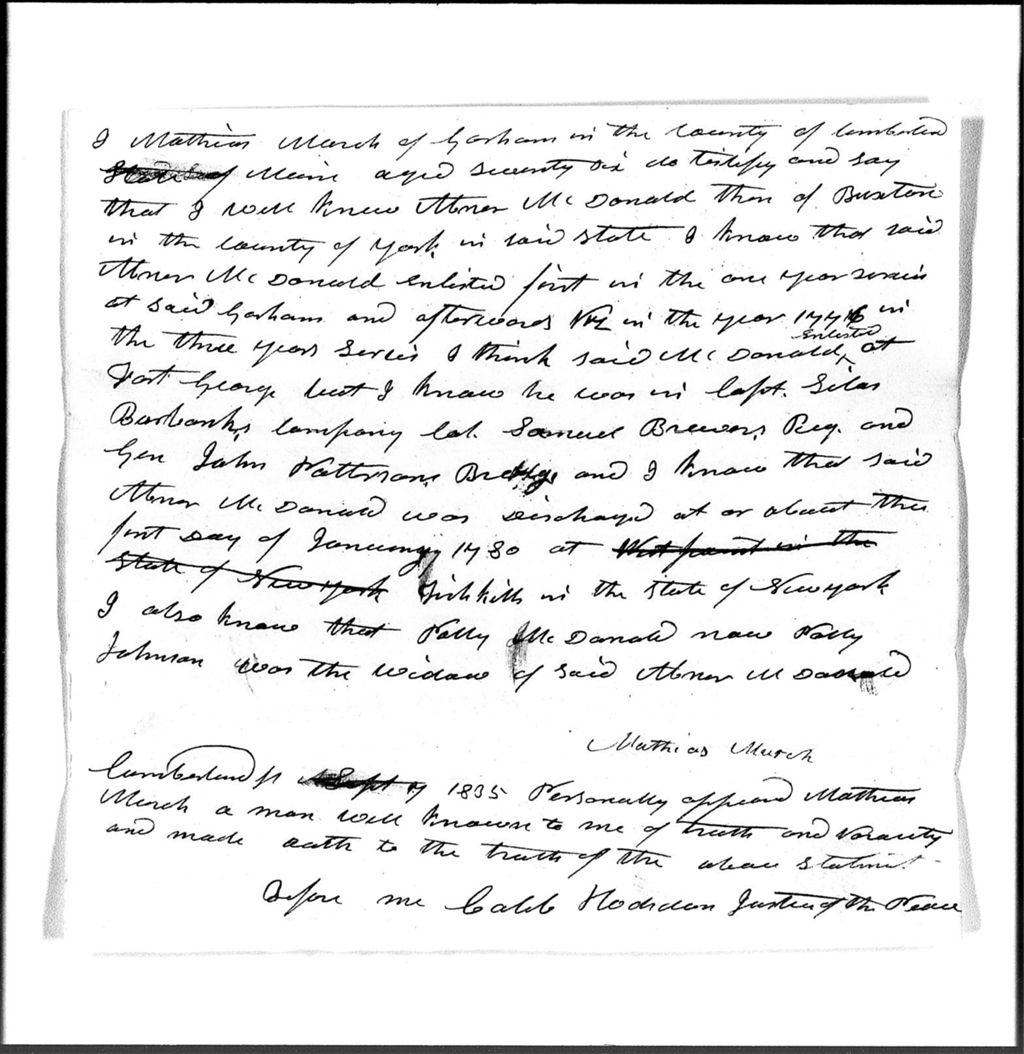 I Mathias Murch of Gorham in the County of Cumberland
State of Maine aged seventy six do testify and say
that I well knew Abner McDonald then of Buxton
in the County of York in said State I know that said
Abner McDonald enlisted first in the one year service
at said Gorham and afterwards Viz in the year 1776 in
the three years service I think said McDonald enlisted at
Fort George but I know he was in Capt. Silas
Burbanks Company Col. Samuel Brewers Reg. and
Gen John Pattersons Brig and I know that said
Abner McDonald was discharged at or about the
first day of January 1780 at West point in the
State of New York Fishkills in the State of New york
I also know that Polly McDonald now Polly
Johnson was the widow of said Abner McDonald
Mathias Murch
Cumberland ss Sept 1835 Personally appeared Mathias
Murch a man well known to me of truth and veracity
and made oath to the truth of the above statment
Before me Caleb Hodsdon Justice of the Peace